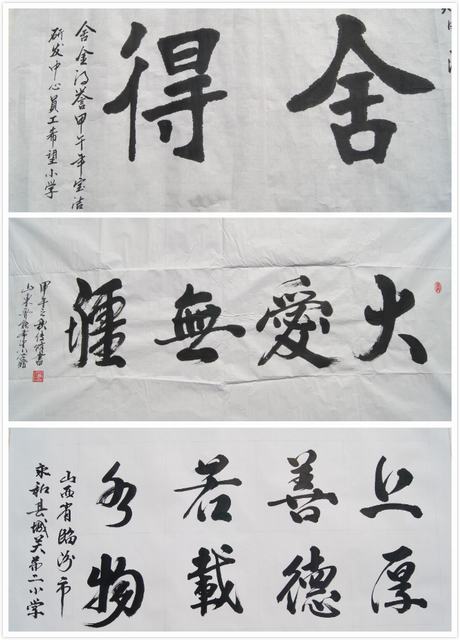 舍得
舍金得誉甲午年宝洁
研发中心员工希望小学
大愛無疆
甲午之秋
山東
上善若水
厚德載物
山西省臨汾市
永和县城关第二小学